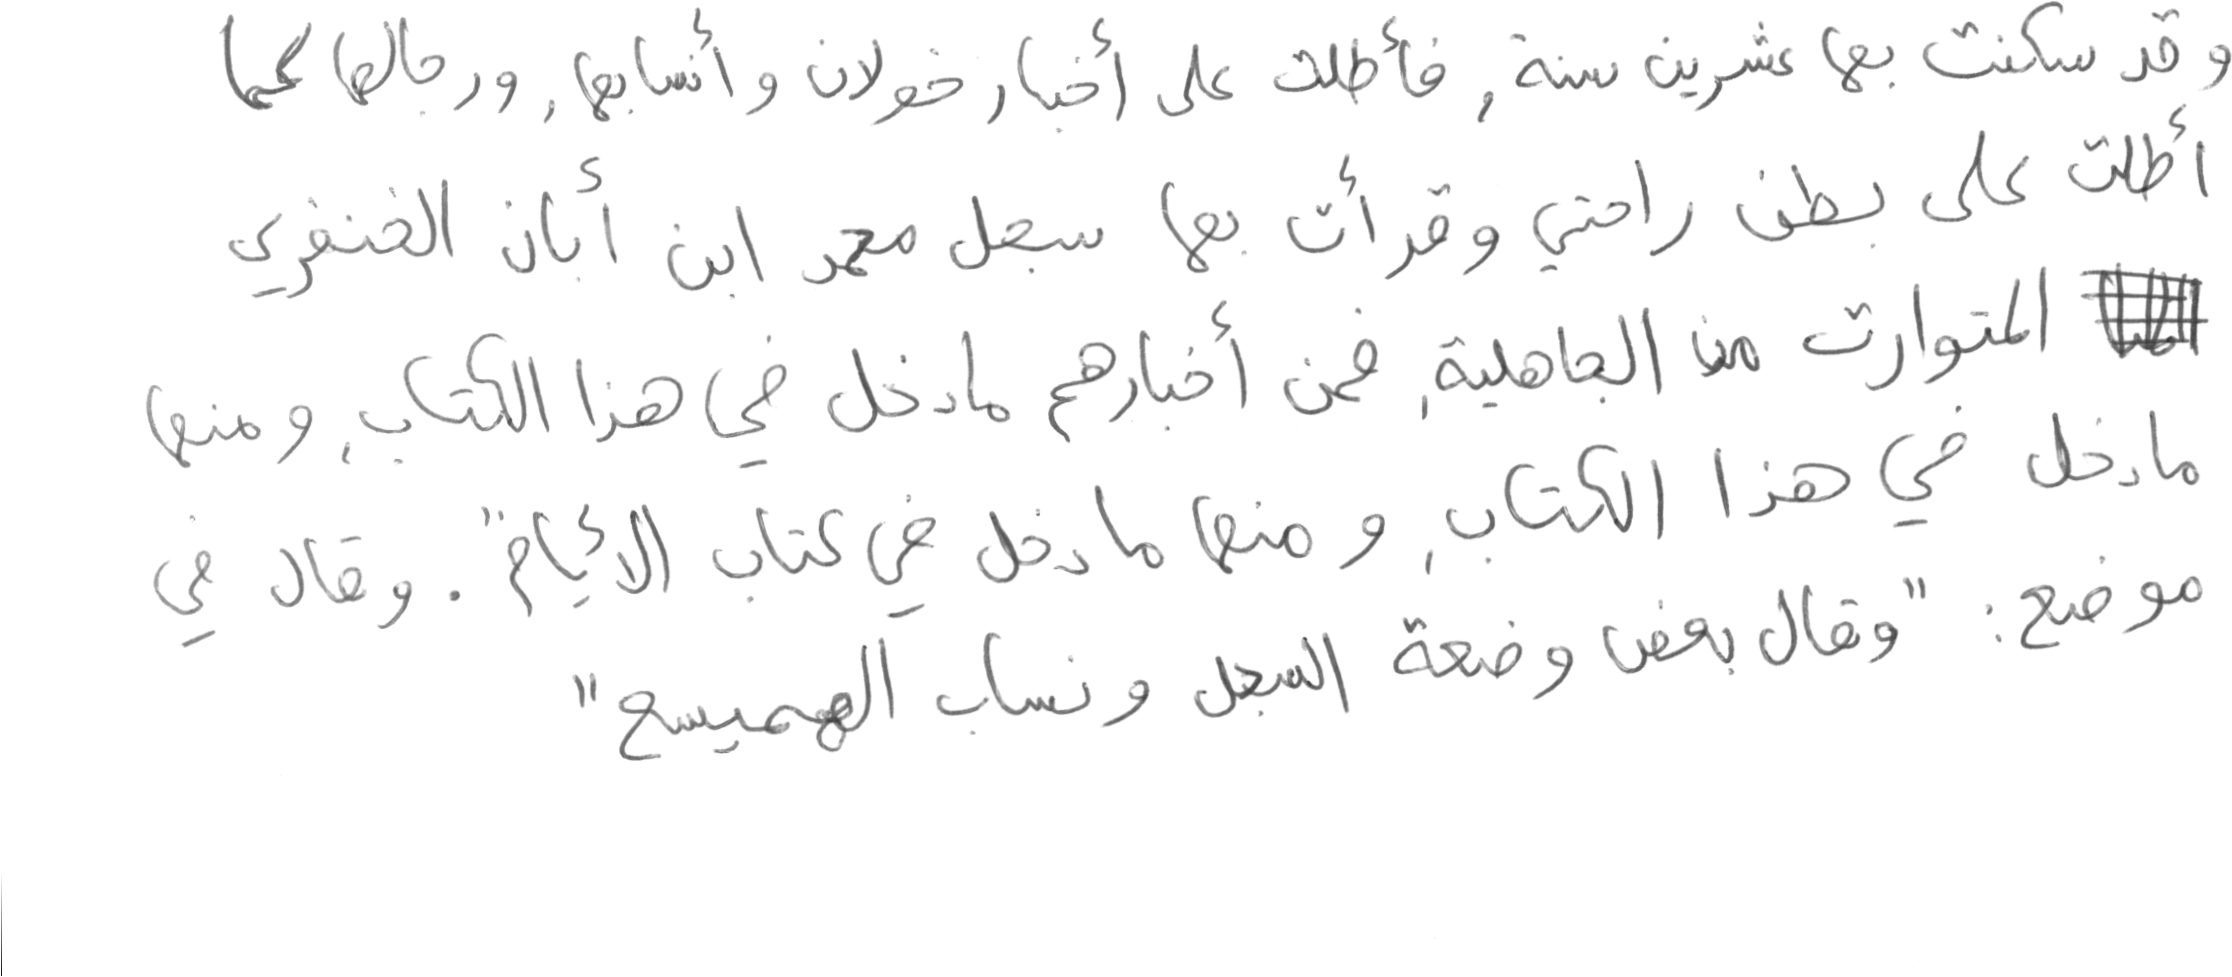 وقد سكنت بها عشرين سنة، فأطلت على أخبار خولان وأنسابها، ورجالها كما
أطلت على بطن راحتي وقرأت بها سجل محمد ابن أبان الخنفري
المتوارت من الجاهلية، فمن أخبارهم مادخل في هذا الكتاب، ومنها
مادخل في هذا الكتاب، ومنها مادخل في كتاب الأيام". وقال في
موضع: "وقال بعض وضعة السجل ونساب الهميسع"